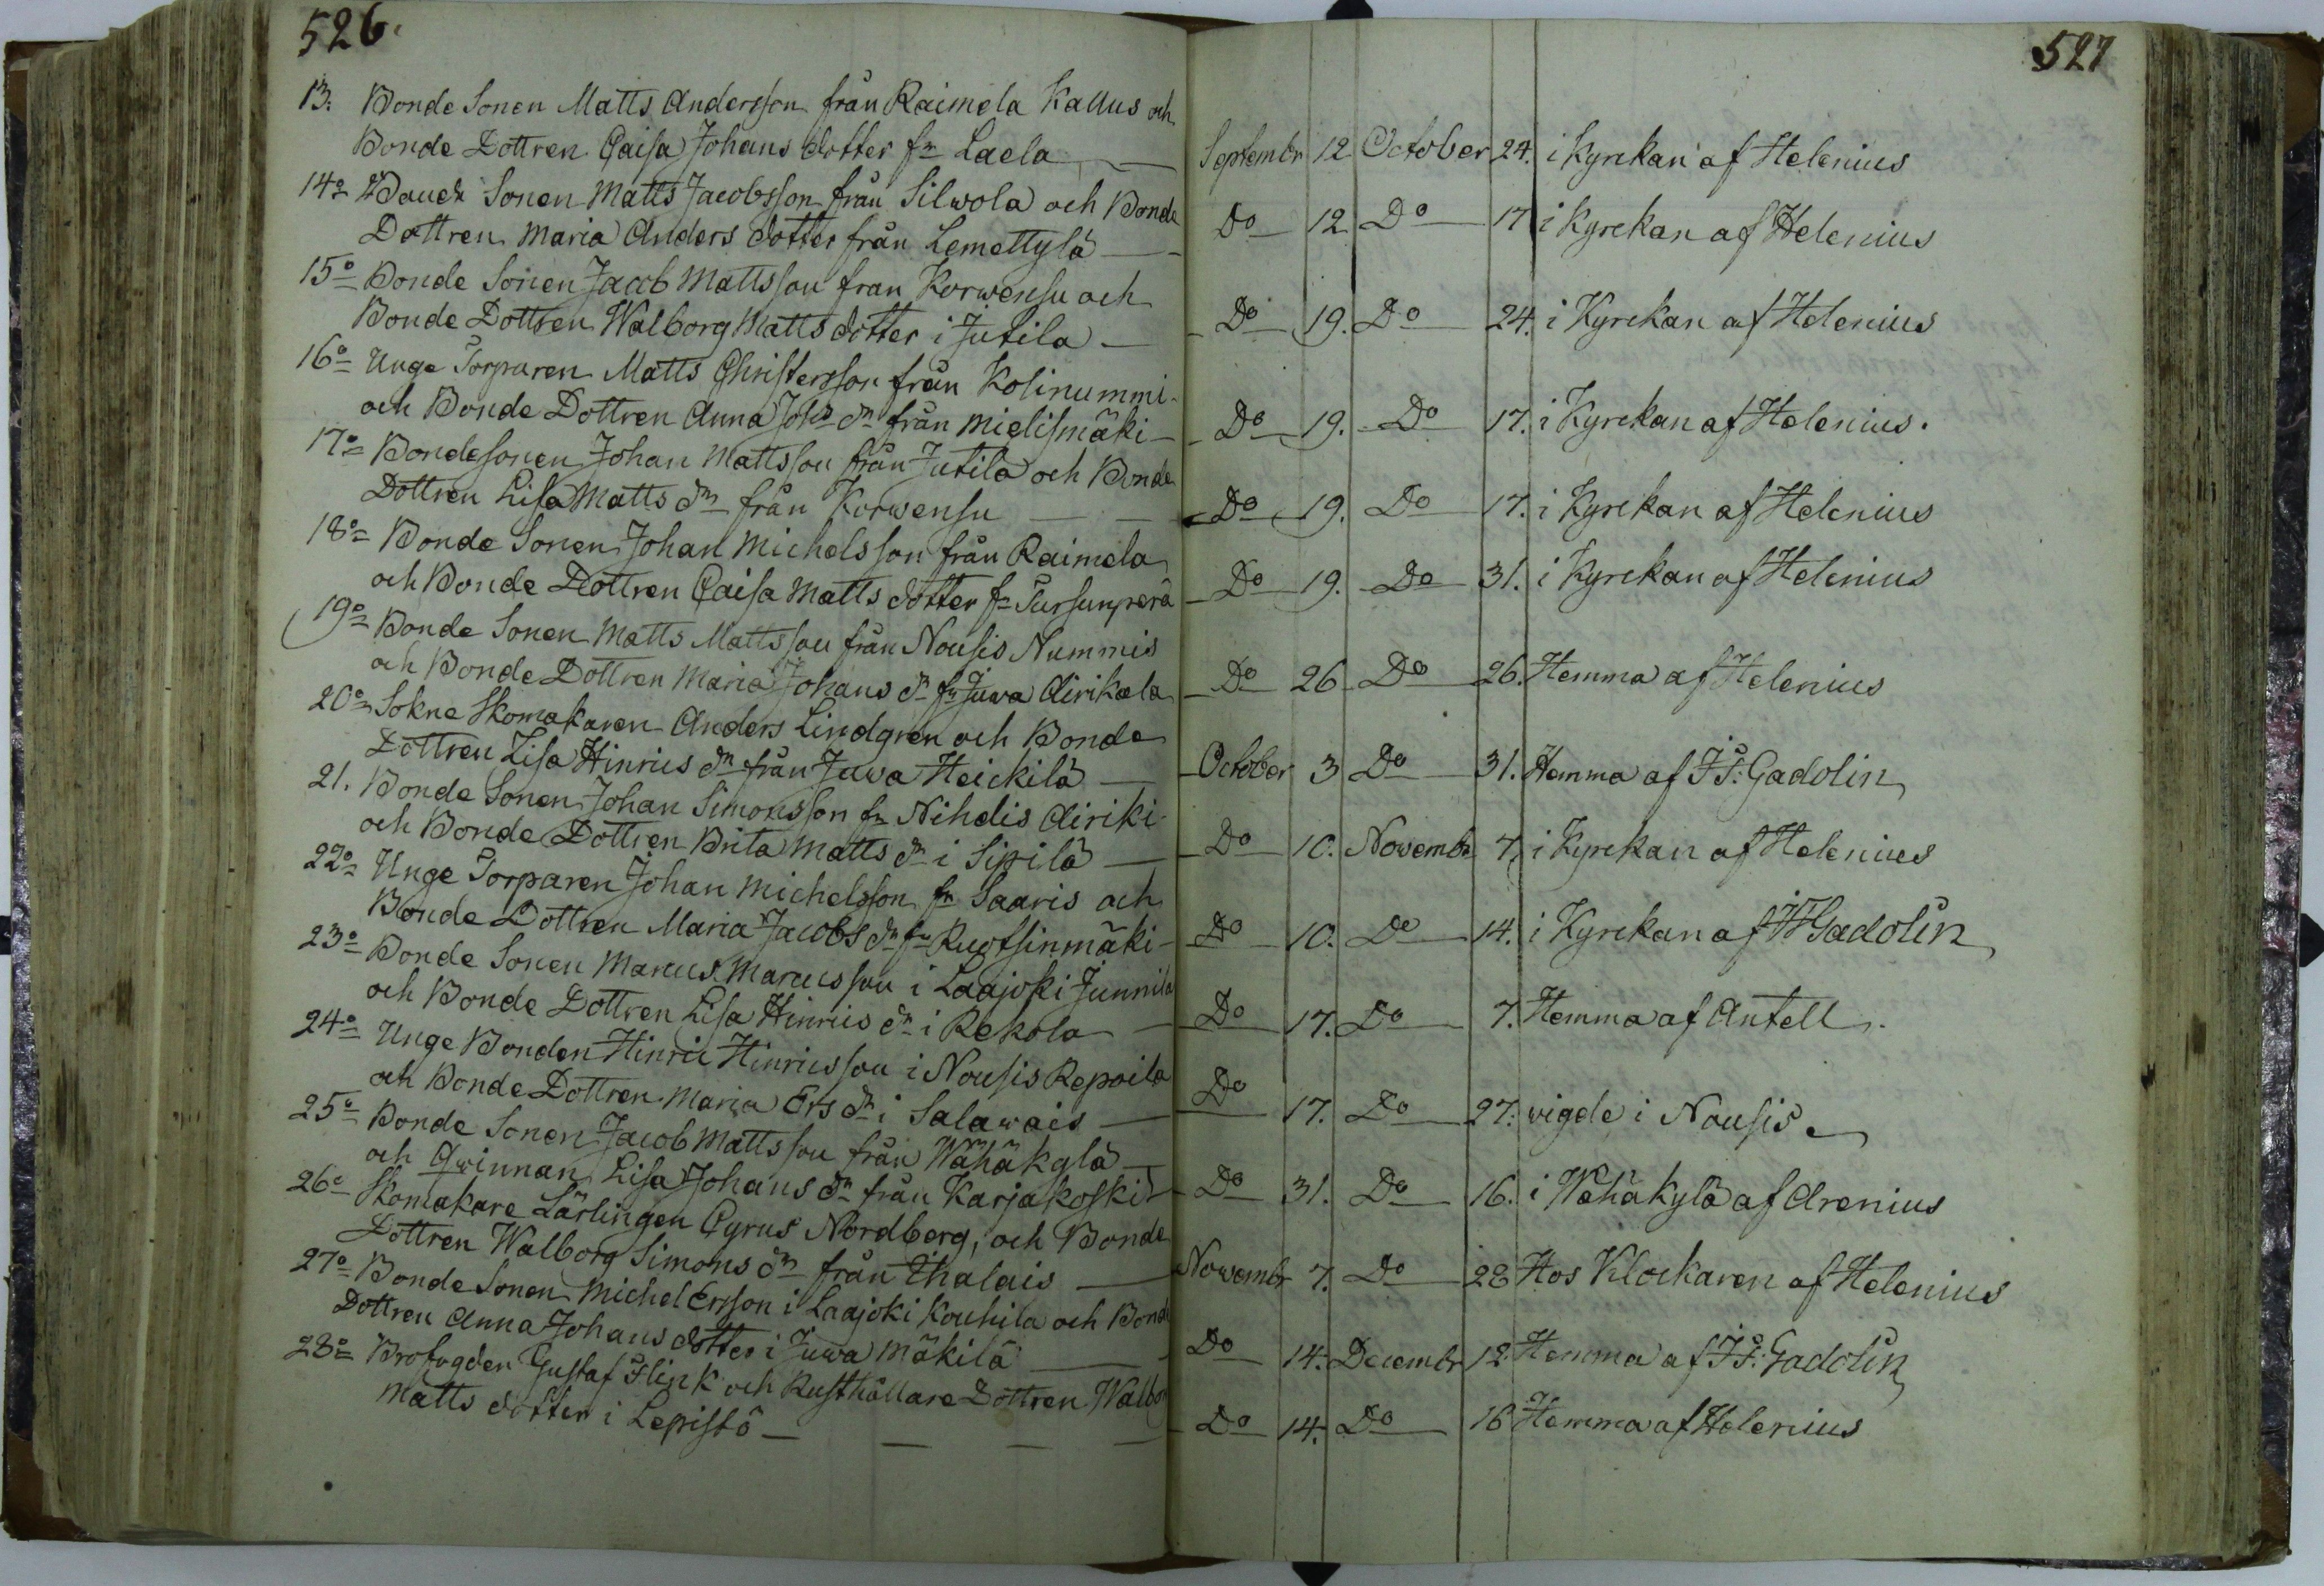 526.
13. Bonde Sonen Matts Andersson från Raimela Kallus och
Bonde Dottren Caisa Johans dotter fn Laela
14o Sonen Matts Jacobsson från Silwola och Bonde
Dottren Maria Anders dotter från Lemettylä
15o Bonde Sonen Jacob Mattsson från Korwensu och
Bonde Dottren Walborg Matts dotter i Jutila
16o Unge Torparen Matts Christersson från Kolinummi
och Bonde Dottren Anna Johs dr från Mielismäki
17o Bondesonen Johan Mattsson från Jutila och Bonde
Dottren Lisa Matts dr från Korwensu
18o Bonde Sonen Johan Michelsson från Raimela
och Bonde Dottren Caisa Matts dotter fn Tursunperä
19o Bonde Sonen Matts Mattsson från Nousis Nummis
och Bonde Dottren Maria Johans dr fn Juwa Airikala
20o Sokne Skomakaren Anders Lindgren och Bonde
Dottren Lisa Hinrics dr från Juwa Heickilä
21. Bonde Sonen Johan Simonsson fn Nihdis Airiki
och Bonde Dottren Brita Matts dr i Sipilä
22o Unge Torparen Johan Michelsson fn Saaris och
Bonde Dottren Maria Jacobs dr fn Ruotsinmäki
23o Bonde Sonen Marcus Marcusson i Laajoki Junnila
och Bonde Dottren Lisa Hinrics dr i Rekola
24o Unge Bonden Hinric Hinricsson i Nousis Repoila
och Bonde Dottren Maria Ers dr i Salawais
25o Bonde Sonen Jacob Mattsson från Wähäkylä
och Qwinnan Lisa Johans dr från Karjakoski
26o Skomakare Lärlingen Cyrus Nordberg, och Bonde
Dottren Walborg Simons dr från Ehalais
27o Bonde Sonen Michel Ersson i Laajoki Kouhila och Bonde
Dottren Anna Johans dotter i Juwa Mäkilä
28o Brofogden Gustaf Flink och Rusthållare Dottren Walbor
Matts dotter i Lepistö
527
Septembr 12 October 24. i Kyrckan af Helenius
Do 12 Do 17 i Kyrckan af Helenius
Do 19. Do 24. i Kyrckan af Helenius
Do 19. Do 17. i Kyrckan af Helenius.
Do 19. Do 17. i Kyrckan af Helenius
Do 19. Do 31. i Kyrckan af Helenius
Do 26 Do 26. Hemma af Helenius
October 3 Do 31. Hemma af J.S: Gadolin
Do 10. Novembr 7. i Kyrckan af Helenius
Do 10. Do 14. i Kyrckan af Gadolin
Do 17. Do 7. Hemma af Antell.
Do 17. Do 27. wigde i Nousis
Do 31. Do 16. i Wähäkylä af Arenius
Novembr 7. Do 28 Hos Klockaren af Helenius
Do 14. Decembr 12. Hemma af J.S: Gadolin
Do 14. Do 16 Hemma af Helenius